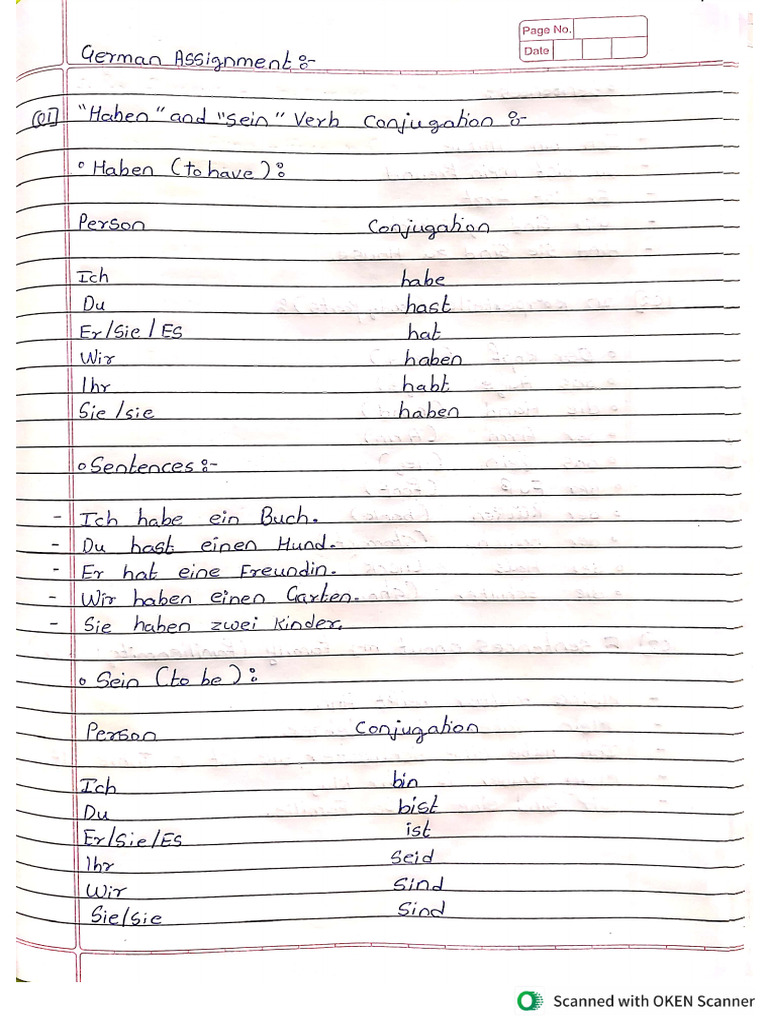 Page No.
Date
German Assignment :-
Q1] "Haben" and "Sein" Verb Conjugation :-
Haben (to have) :
Person Conjugation
Ich habe
Du hast
Er/Sie/Es hat
Wir haben
Ihr habt
Sie/sie haben
Sentences :-
- Ich habe ein Buch.
- Du hast einen Hund.
- Er hat eine Freundin.
- Wir haben einen Garten.
- Sie haben zwei Kinder.
Sein (to be) :
Person Conjugation
Ich bin
Du bist
Er/Sie/Es ist
Ihr Seid
Wir Sind
Sie/sie Sind
Scanned with OKEN Scanner